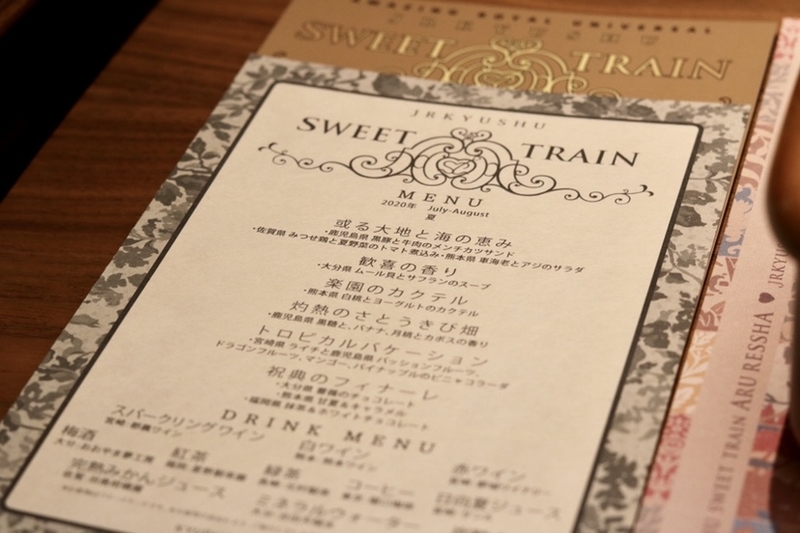 AMAZING ROYAL UNIVERSAL
JRKYUSHU
SWEET TRAIN
JRKYUSHU
SWEET TRAIN
MENU
2020年 July-August
夏
或る大地と海の恵み
・鹿児島県 黒豚と牛肉のメンチカツサンド
・佐賀県 みつせ鶏と夏野菜のトマト煮込み・熊本県 車海老とアジのサラダ
歓喜の香り
・大分県 ムール貝とサフランのスープ
楽園のカクテル
・熊本県 白桃とヨーグルトのカクテル
灼熱のさとうきび畑
・鹿児島県 黒糖と、バナナ、月桃とカボスの香り
トロピカルバケーション
・宮崎県 ライチと鹿児島県 パッションフルーツ、
ドラゴンフルーツ、マンゴー、パイナップルのピニャコラーダ
祝典のフィナーレ
・大分県 薔薇のチョコレート
・熊本県 甘夏＆キャラメル
・福岡県 抹茶＆ホワイトチョコレート
DRINK MENU
スパークリングワイン 白ワイン 赤ワイン
宮崎・都農ワイン 熊本・熊本ワイン
梅酒 紅茶 緑茶 コーヒー 日向夏ジュース
大分・おおやま夢工房
完熟みかんジュース ミネラルウォーター
SWEET TRAIN ARU RESSHA